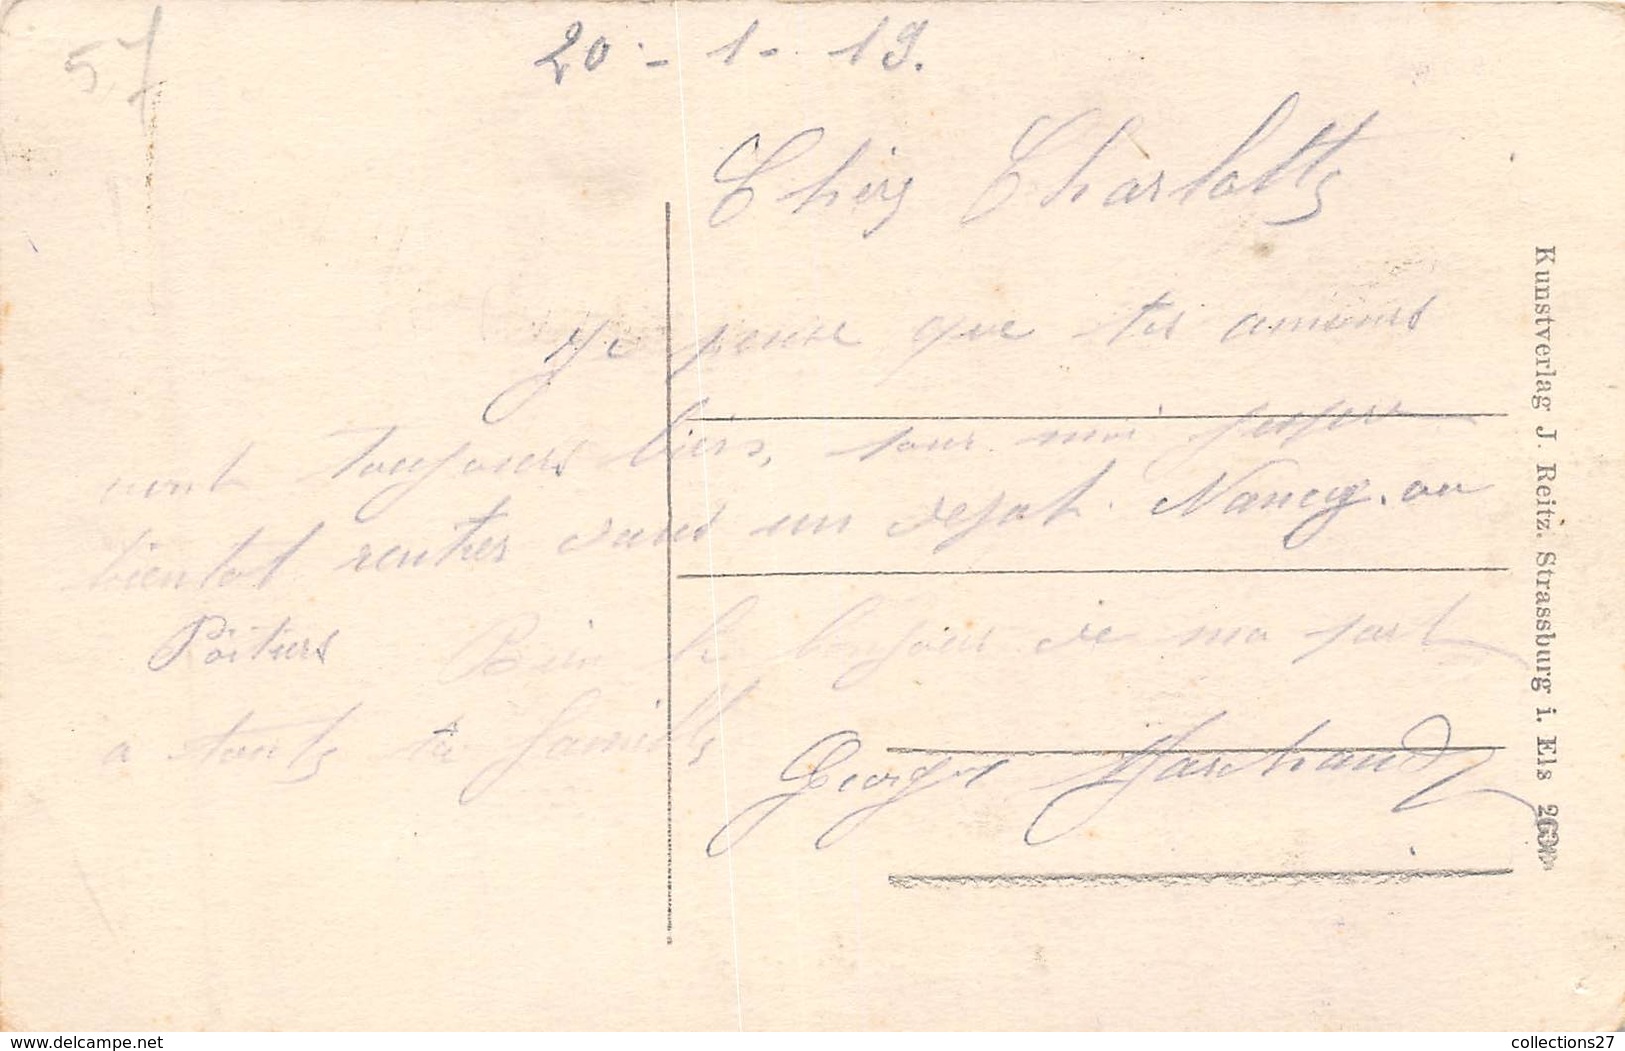 57
20 - 1 - 19.
Chère Charlotte
Je pense que tes amours
vont toujours bien, pour moi j'espère
bientot rentrer dans un depot. Nancy. ou
Poitiers Bien le bonjour de ma part
a toute ta famille
Georges Marchand
Kunstverlag J. Reitz. Strassburg i. Els
delcampe.net
collections27